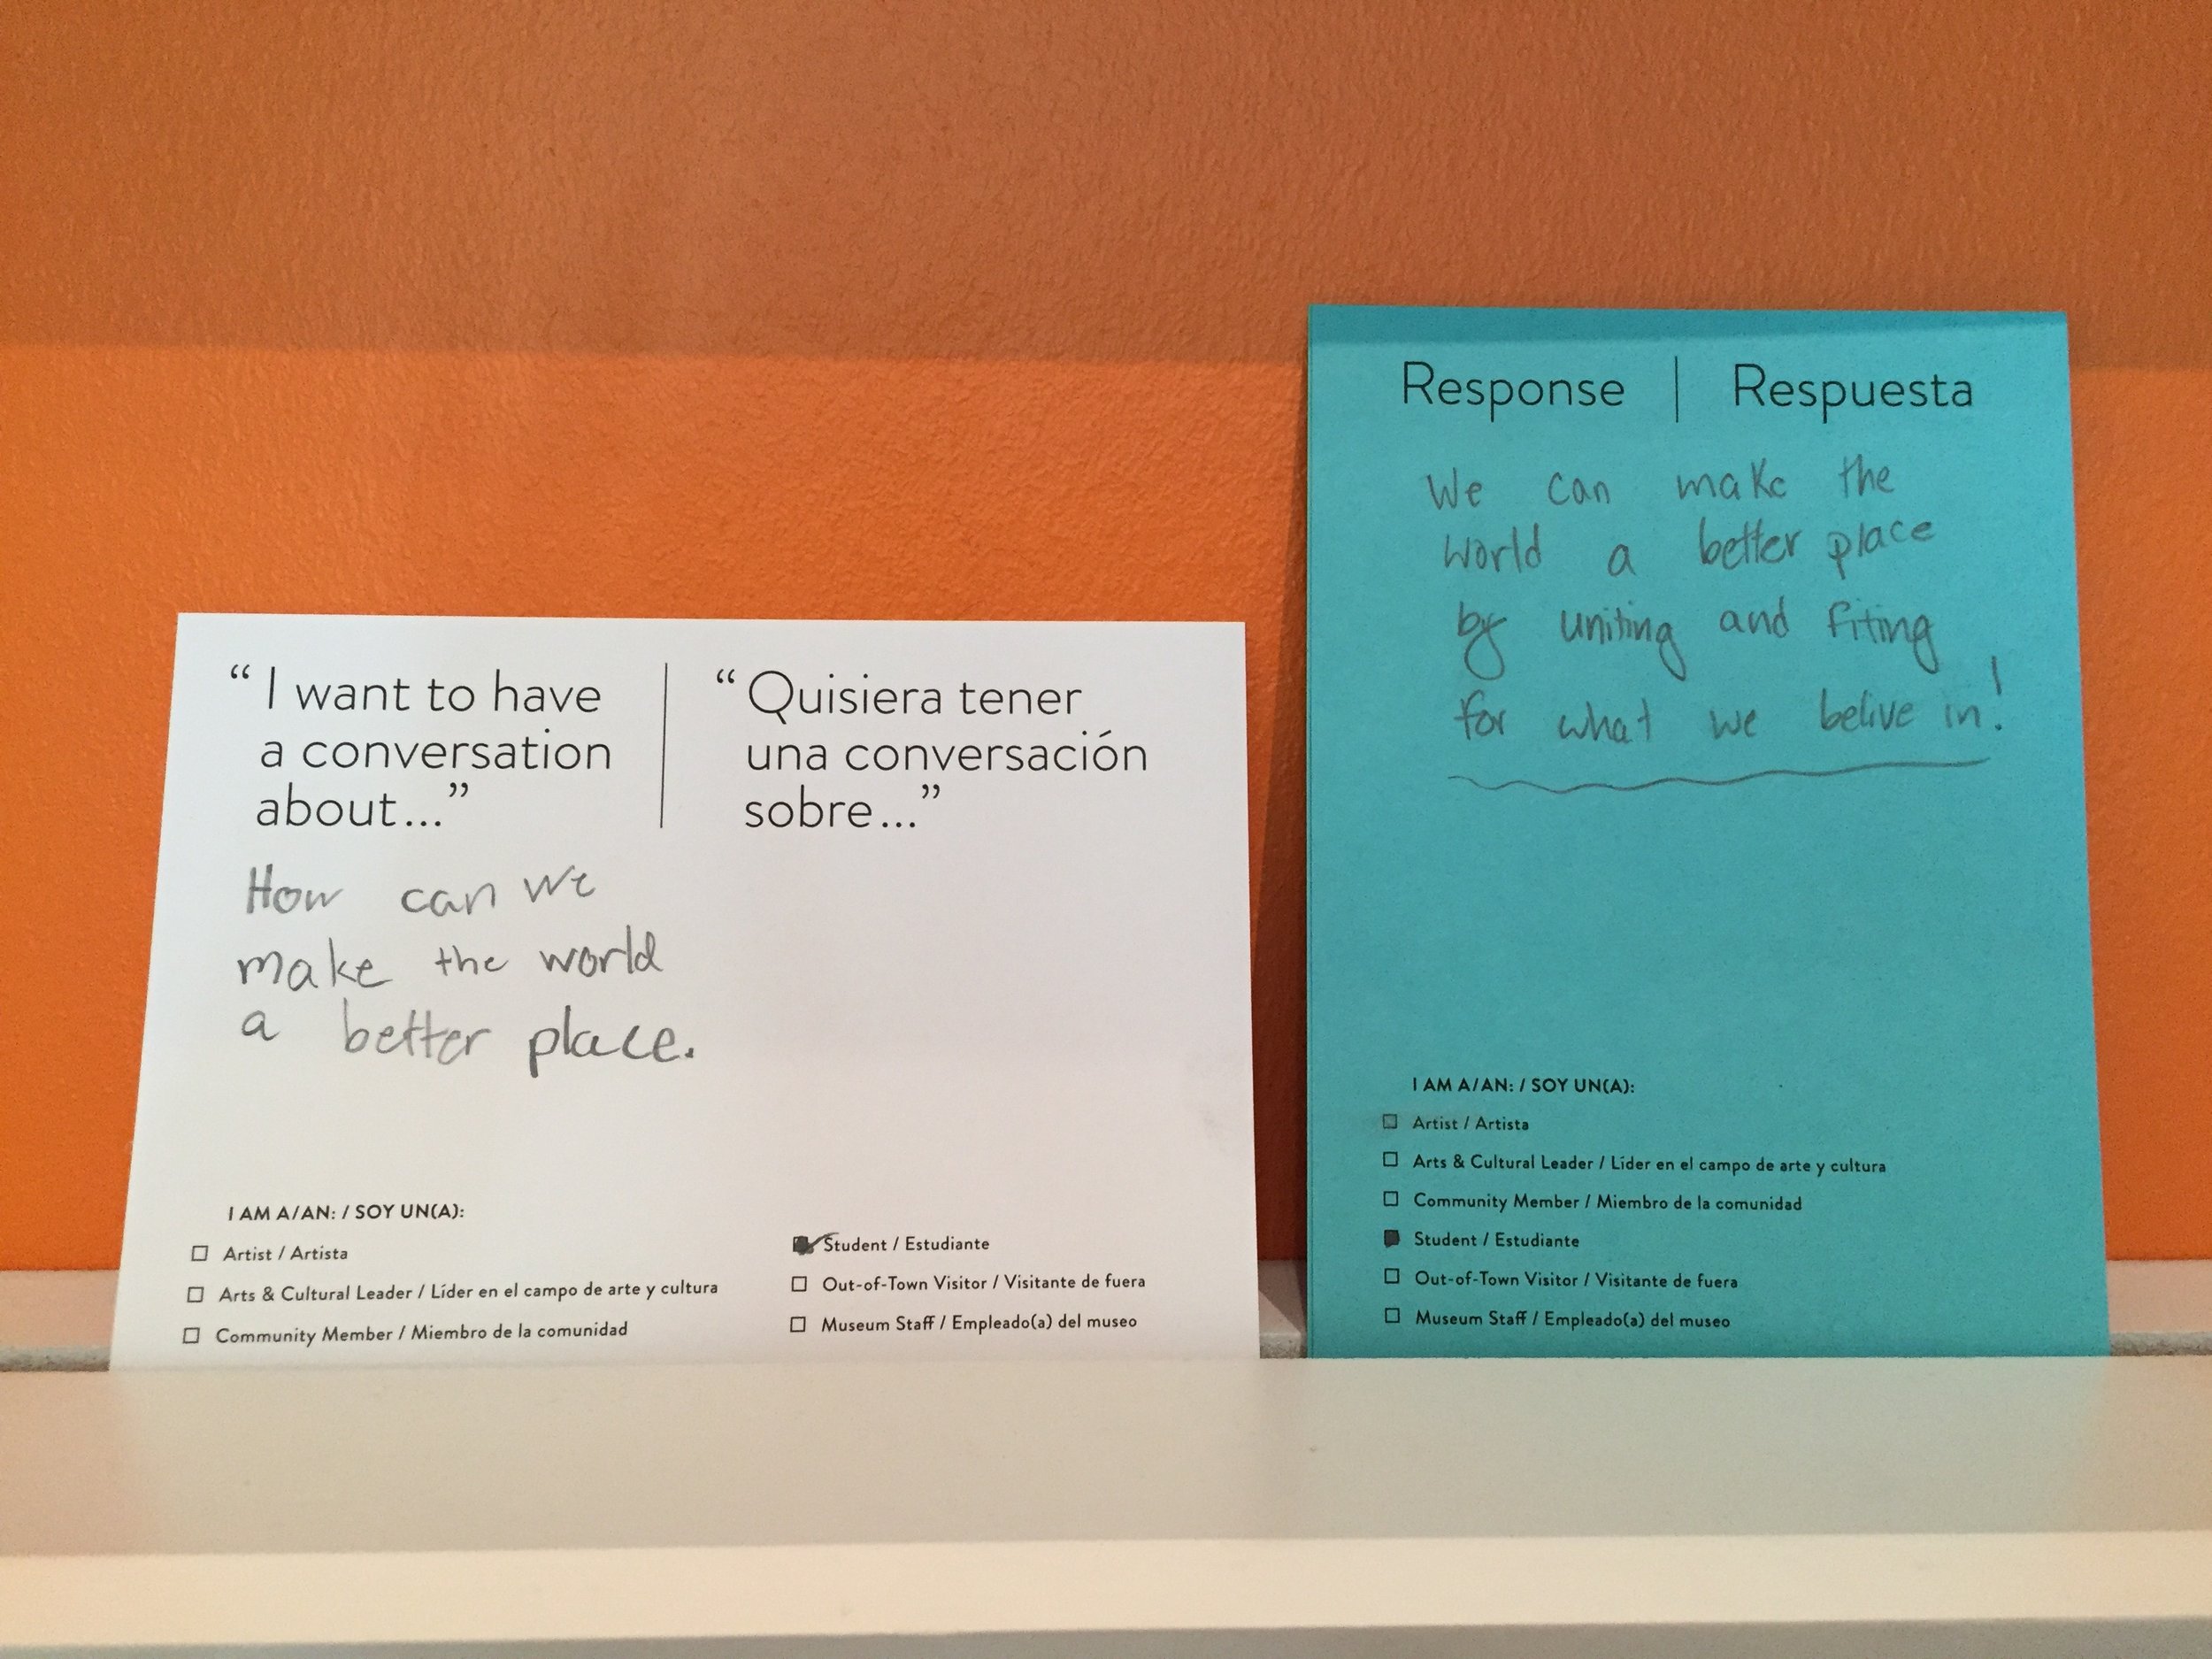 “ I want to have
a conversation
about...”
“ Quisiera tener
una conversación
sobre...”
How can we
make the world
a better place.
I AM A/AN: / SOY UN(A):
Artist / Artista
Arts & Cultural Leader / Líder en el campo de arte y cultura
Community Member / Miembro de la comunidad
Student / Estudiante
Out-of-Town Visitor / Visitante de fuera
Museum Staff / Empleado(a) del museo
Response | Respuesta
We can make the
world a better place
by uniting and fiting
for what we belive in!
I AM A/AN: / SOY UN(A):
Artist / Artista
Arts & Cultural Leader / Líder en el campo de arte y cultura
Community Member / Miembro de la comunidad
Student / Estudiante
Out-of-Town Visitor / Visitante de fuera
Museum Staff / Empleado(a) del museo